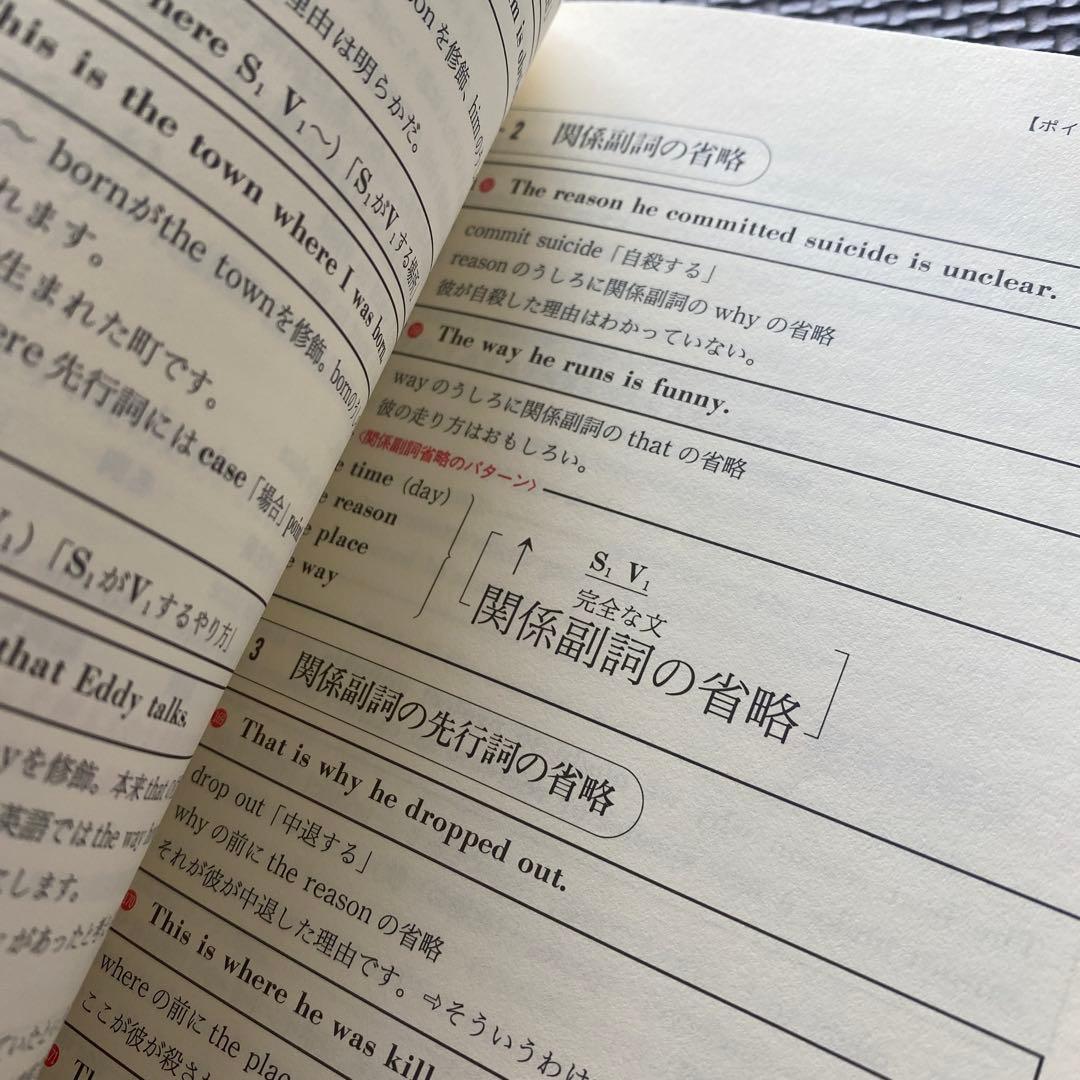 here S₁ V₁～)「S₁がV₁する場
由は明らかだ。
を修飾、himの
his is the town where I was born.
～ bornがthe townを修飾。bornのう
れます。
生まれた町です。
ere 先行詞にはcase「場合」poin
)「S₁がV₁するやり方」
that Eddy talks.
yを修飾。本来that
英語ではthe way
にします。
があったとき
【ポイ
2 関係副詞の省略
The reason he committed suicide is unclear.
commit suicide「自殺する」
reasonのうしろに関係副詞の why の省略
彼が自殺した理由はわかっていない。
The way he runs is funny.
wayのうしろに関係副詞の that の省略
彼の走り方はおもしろい。
〈関係副詞省略のパターン〉
time (day)
reason
place
way
↑ S₁ V₁
完全な文
関係副詞の省略
3 関係副詞の先行詞の省略
That is why he dropped out.
drop out「中退する」
whyの前に the reason の省略
それが彼が中退した理由です。⇨そういうわけ
This is where he was kill
whereの前に the place
ここが彼が殺さ